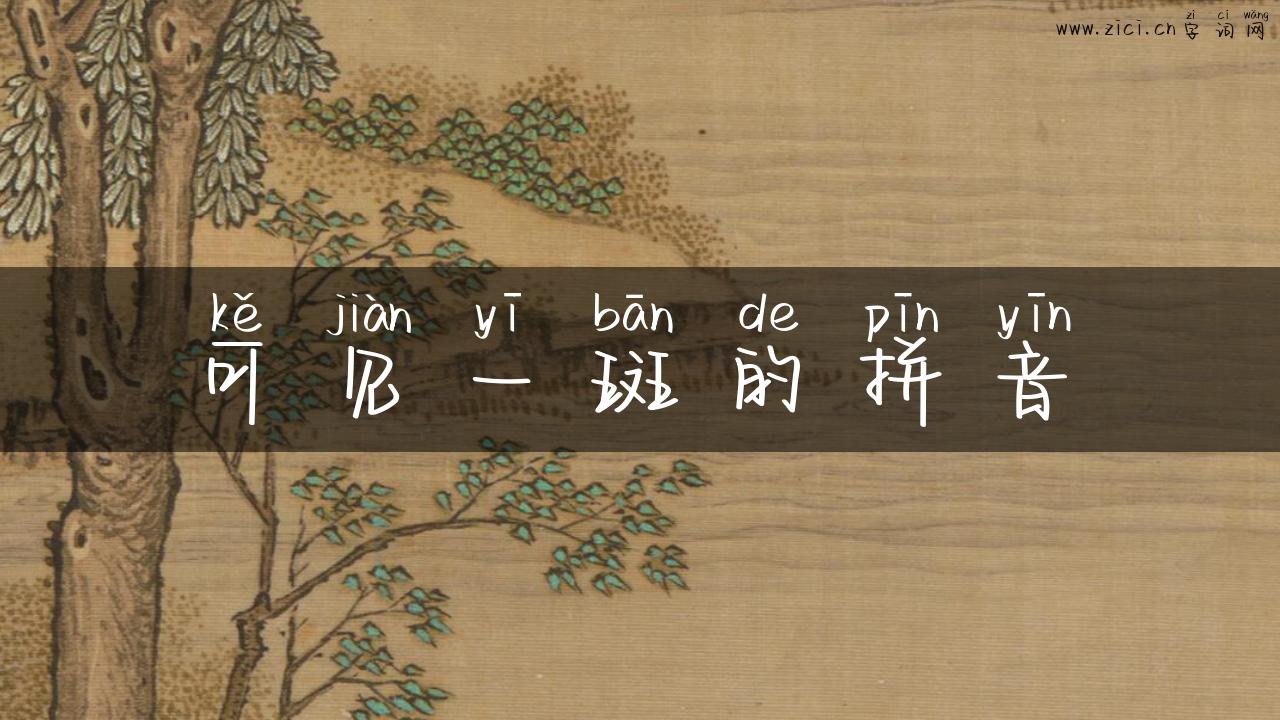 zì cí wǎng
www.zici.cn 字词网
kě jiàn yī bān de pīn yīn
可见一斑的拼音